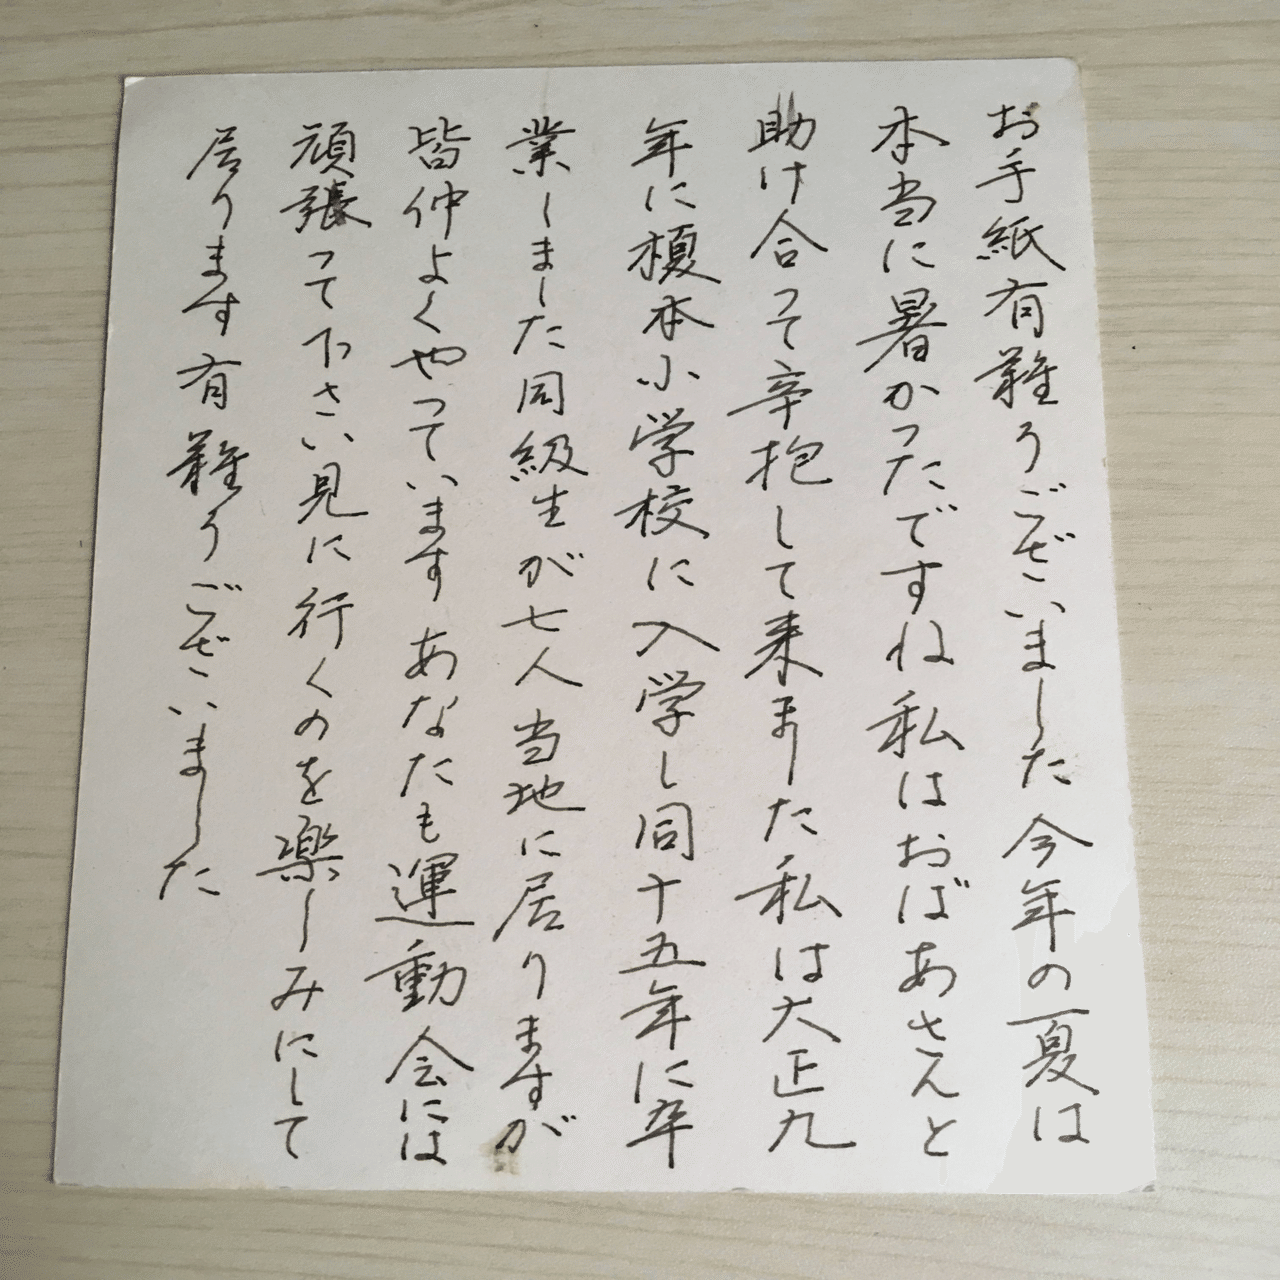 お手紙有難うございました今年の夏は
本当に暑かったですね私はおばあさんと
助け合って辛抱して来ました私は大正九
年に榎本小学校に入学し同十五年に卒
業しました同級生が七人当地に居りますが
皆仲よくやっていますあなたも運動会には
頑張って下さい見に行くのを楽しみにして
居ります有難うございました